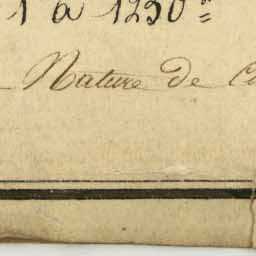 1 à 1250
Nature de